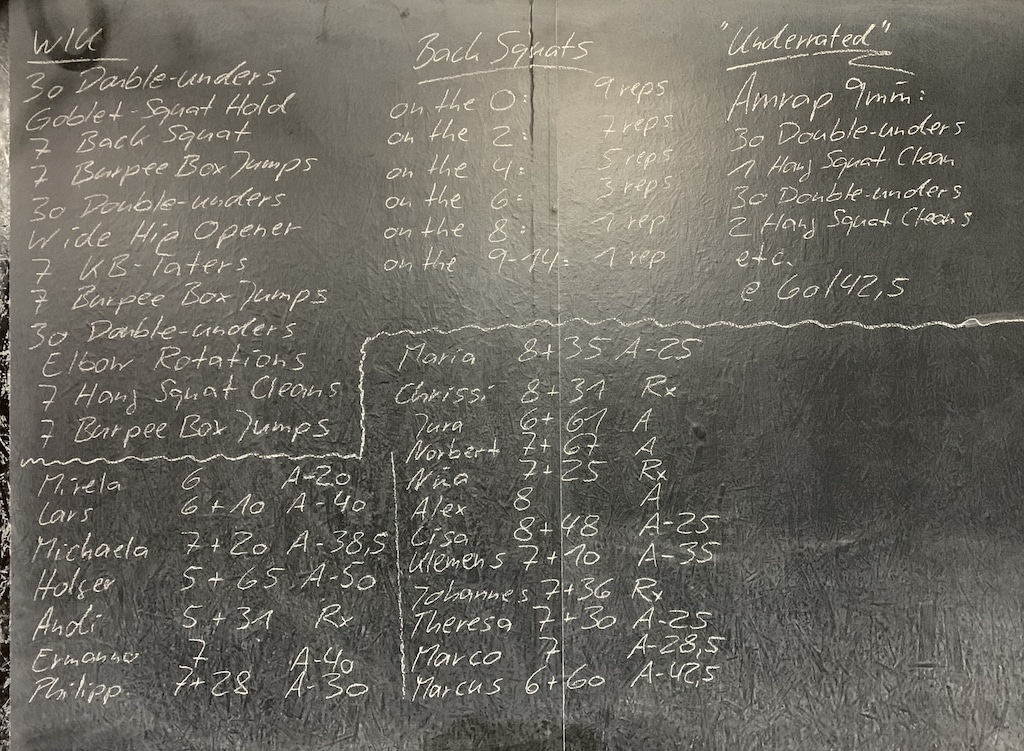 WIU
30 Double-unders
Goblet-Squat Hold
7 Back Squat
7 Burpee Box Jumps
30 Double-unders
Wide Hip Opener
7 KB-Taters
7 Burpee Box Jumps
30 Double-unders
Elbow Rotations
7 Hang Squat Cleans
7 Burpee Box Jumps
Back Squats
on the 0: 9 reps
on the 2: 7 reps
on the 4: 5 reps
on the 6: 3 reps
on the 8: 1 rep
on the 9-14: 1 rep
"Underrated"
Amrap 9min:
30 Double-unders
1 Hang Squat Clean
30 Double-unders
2 Hang Squat Cleans
etc.
@ 60/42,5
Mirela 6 A-20
Lars 6+10 A-40
Michaela 7+20 A-38,5
Holger 5+65 A-50
Andi 5+31 Rx
Ermanno 7 A-40
Philipp 7+28 A-30
Maria 8+35 A-25
Chrissi 8+31 Rx
Jura 6+61 A
Norbert 7+67 A
Nina 7+25 Rx
Alex 8 A
Lisa 8+48 A-25
Klemens 7+10 A-35
Johannes 7+36 Rx
Theresa 7+30 A-25
Marco 7 A-28,5
Marcus 6+60 A-42,5